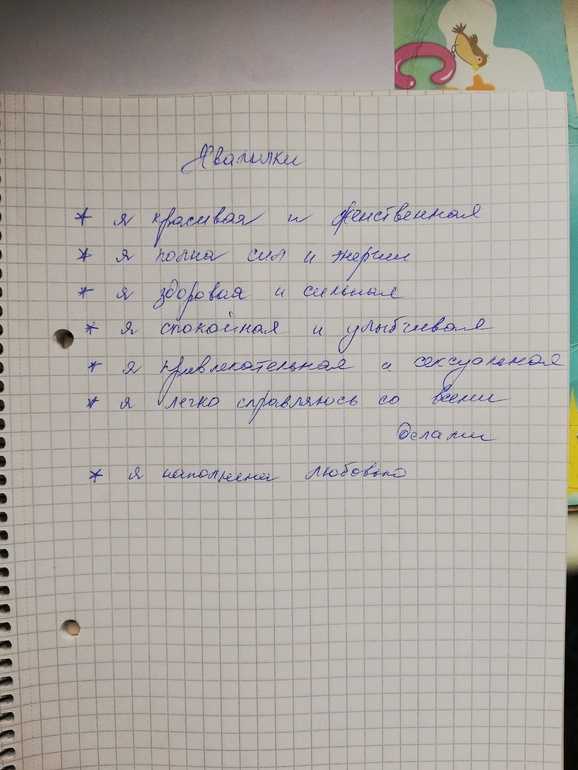 Хвалилки
* я красивая и женственная
* я полна сил и энергии
* я здоровая и сильная
* я спокойная и улыбчивая
* я привлекательная и сексуальная
* я легко справляюсь со всеми
делами
* я наполнена любовью